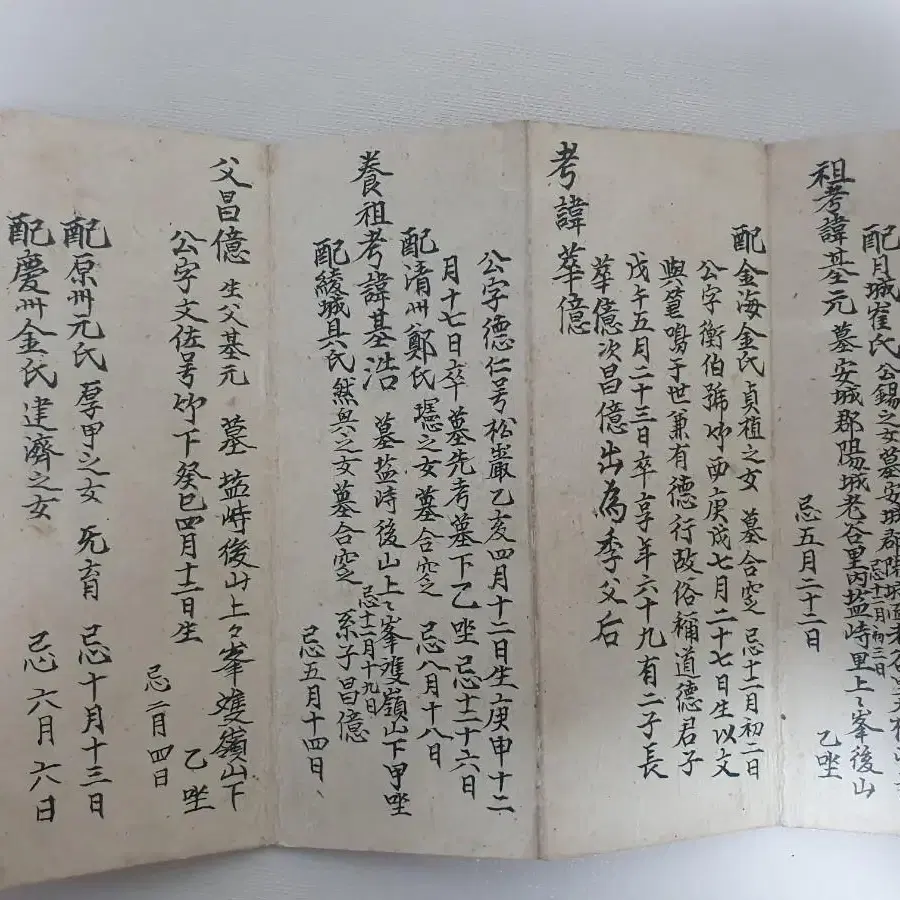 配月城崔氏 公錫之女墓安城郡陽城面老谷里
忌十一月初三日
祖考諱基元 墓安城郡陽城老谷里內塩峙里上上峯後山
乙坐
忌五月二十二日
配金海金氏 貞植之女 墓合窆 忌十二月初二日
公字衡伯號竹西庚戌七月二十七日生以文
與篤鳴于世兼有德行故俗稱道德君子
戊午五月二十三日卒享年六十九有二子長
華億次昌億出為季父后
考諱華億
公字德仁号松巖乙亥四月十二日生庚申十二
月十七日卒墓先考墓下乙坐 忌十二十六日
配清州鄭氏 㙾之女墓合窆 忌八月十八日
養祖考諱基浩 墓塩峙後山上上峯雙嶺山下甲坐
忌十二月十九日
配綾城具氏 然與之女墓合窆 系子昌億
忌五月十四日
父昌億 生父基元 墓 塩峙後山上々峯雙嶺山下
乙坐
公字文佐号竹下癸巳四月十二日生
忌二月四日
配原州元氏 厚甲之女 旡育 忌十月十三日
配慶州金氏 建濟之女 忌六月六日